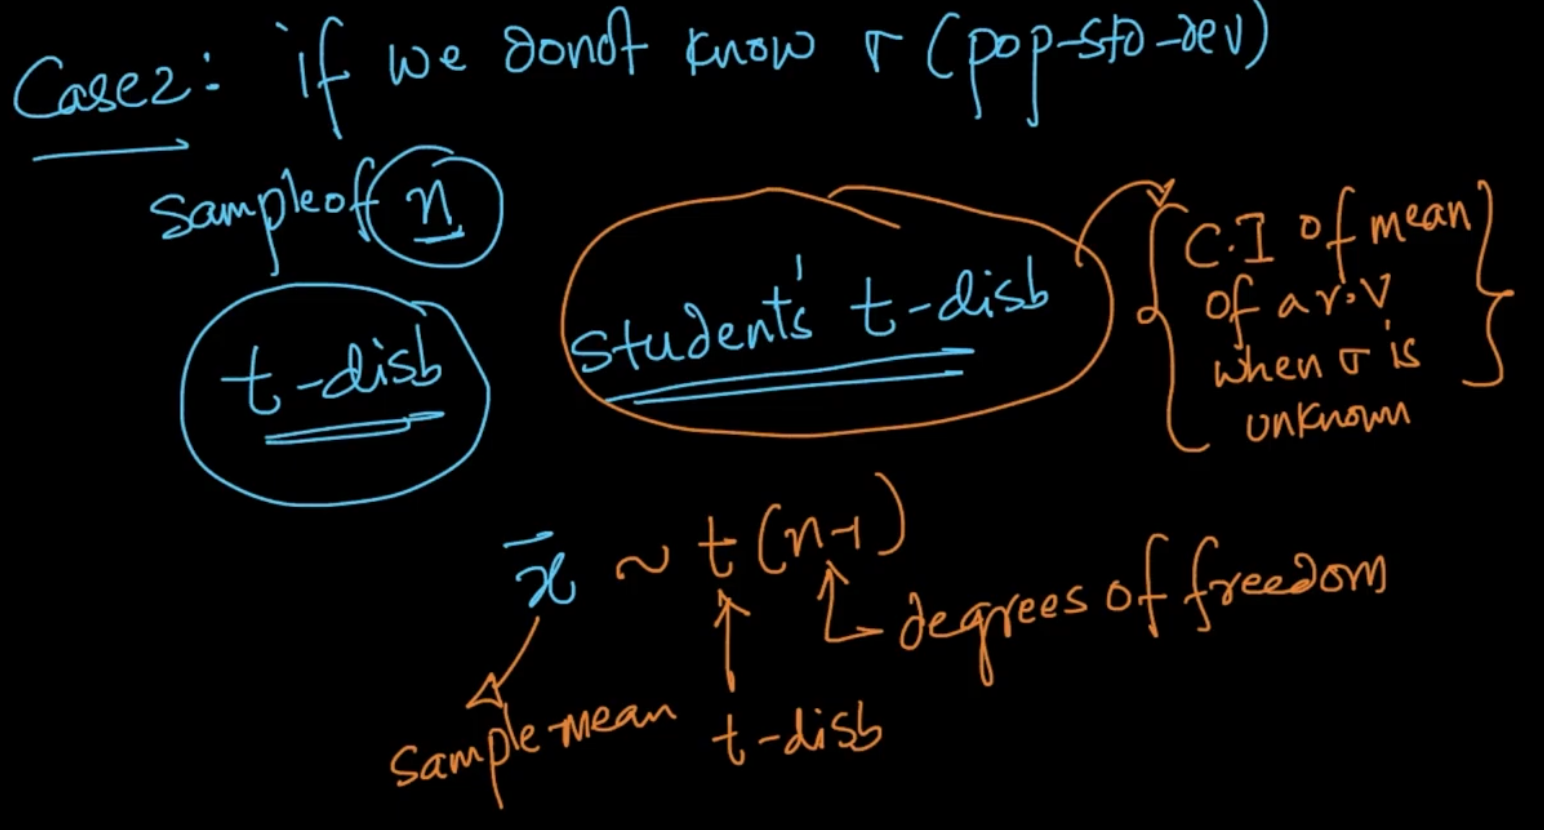 Case2: if we donot know σ (pop-std-dev)
Sample of n
t-disb
student's t-disb
C.I of mean
of a r.v
when σ is
unknown
x̄ ~ t(n-1)
degrees of freedom
Sample mean
t-disb